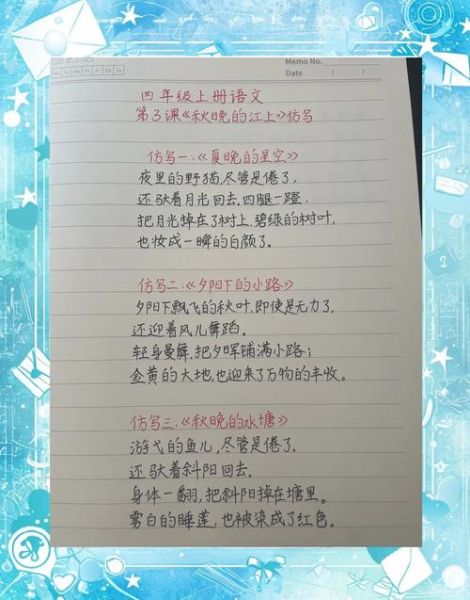 Memo No.
Date / /
四年级上册语文
第3课《秋晚的江上》仿写
仿写一:《夏晚的星空》
夜里的野猫,尽管是倦了,
还驮着月光回去,四腿一蹬,
把月光掉在了树上.碧绿的树叶,
也妆成一瞬的白颜了。
仿写二:《夕阳下的小路》
夕阳下飘飞的秋叶,即使是无力了,
还迎着风儿舞蹈。
轻身曼舞,把夕晖铺满小路;
金黄的大地,也迎来了万物的丰收。
仿写三:《秋晚的水塘》
游弋的鱼儿,尽管是倦了,
还驮着斜阳回去。
身体一翻,把斜阳掉在塘里。
雾白的睡莲,也被染成了红色。